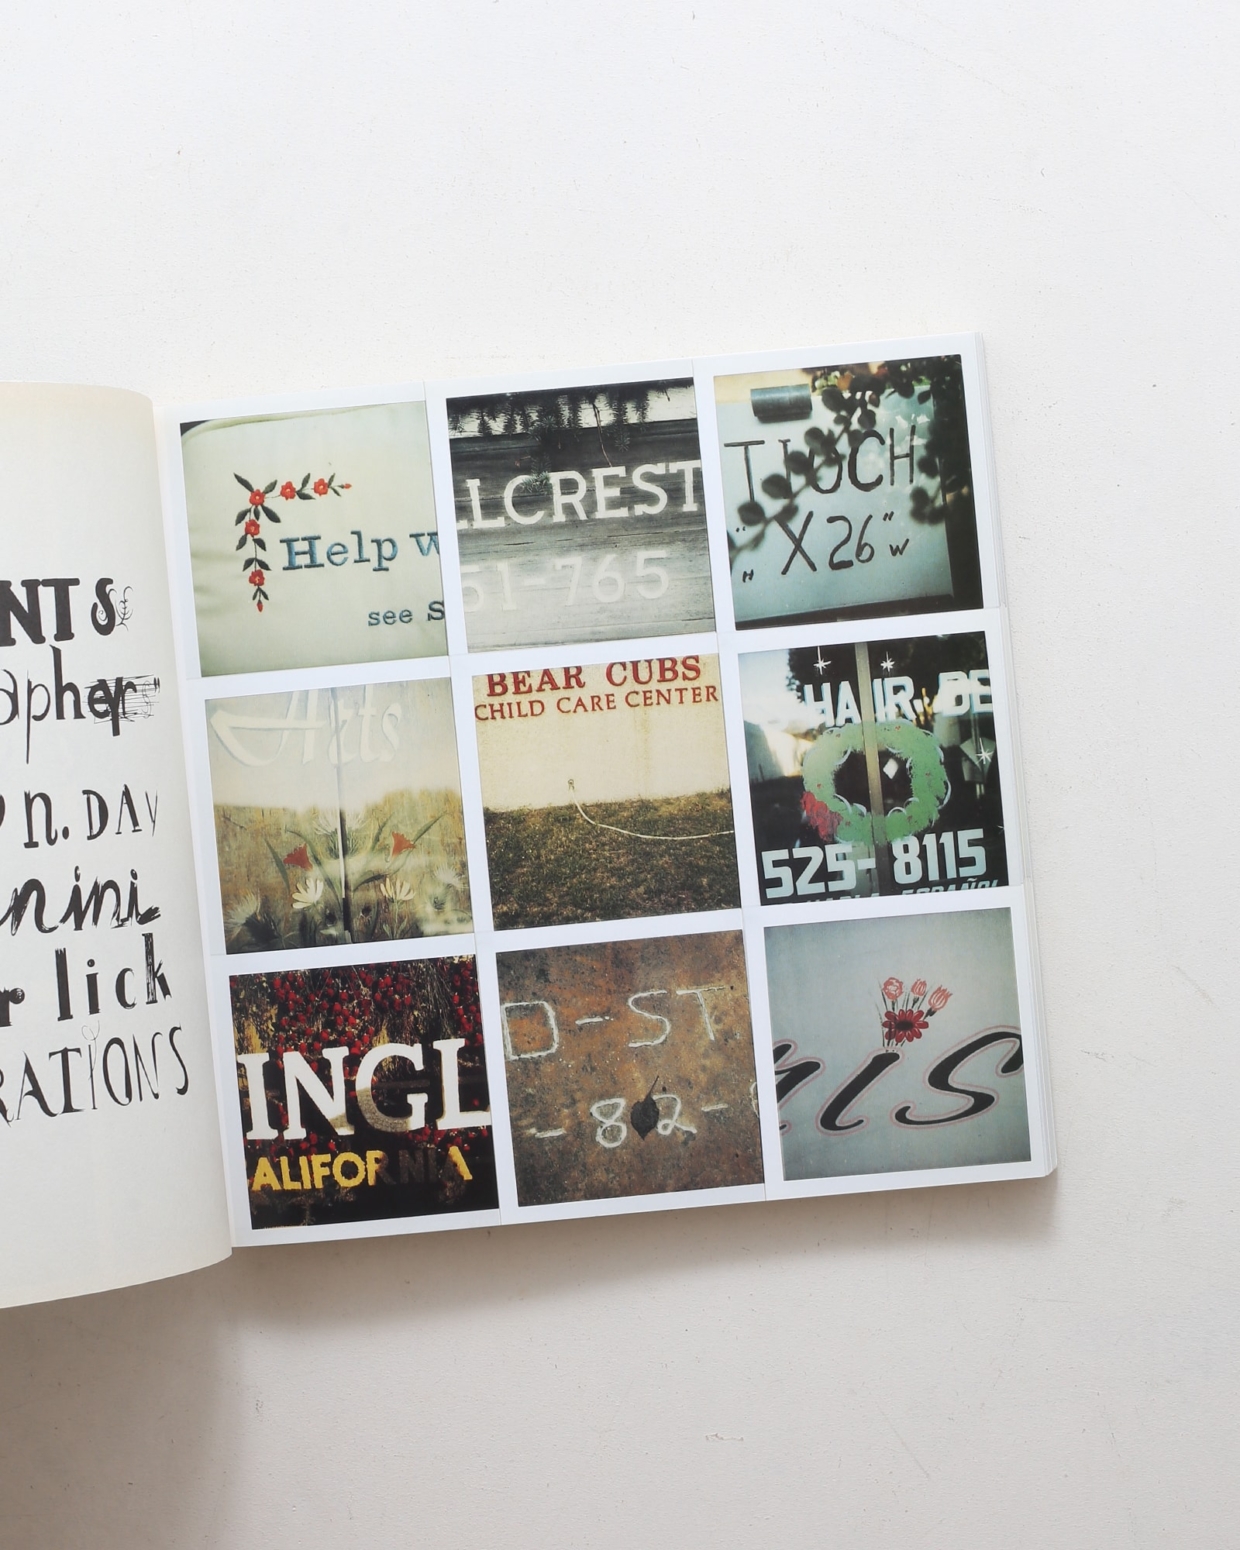 NTS
apher
n. DAY
nini
r lick
RATIONS
Help W
see S
LLCREST
51-765
TOUCH
" X 26" W
H
Arts
BEAR CUBS
CHILD CARE CENTER
HAIR. DE
525-8115
HABLA ESPAÑOL
INGL
ALIFORNIA
D-ST
-82-
NIS